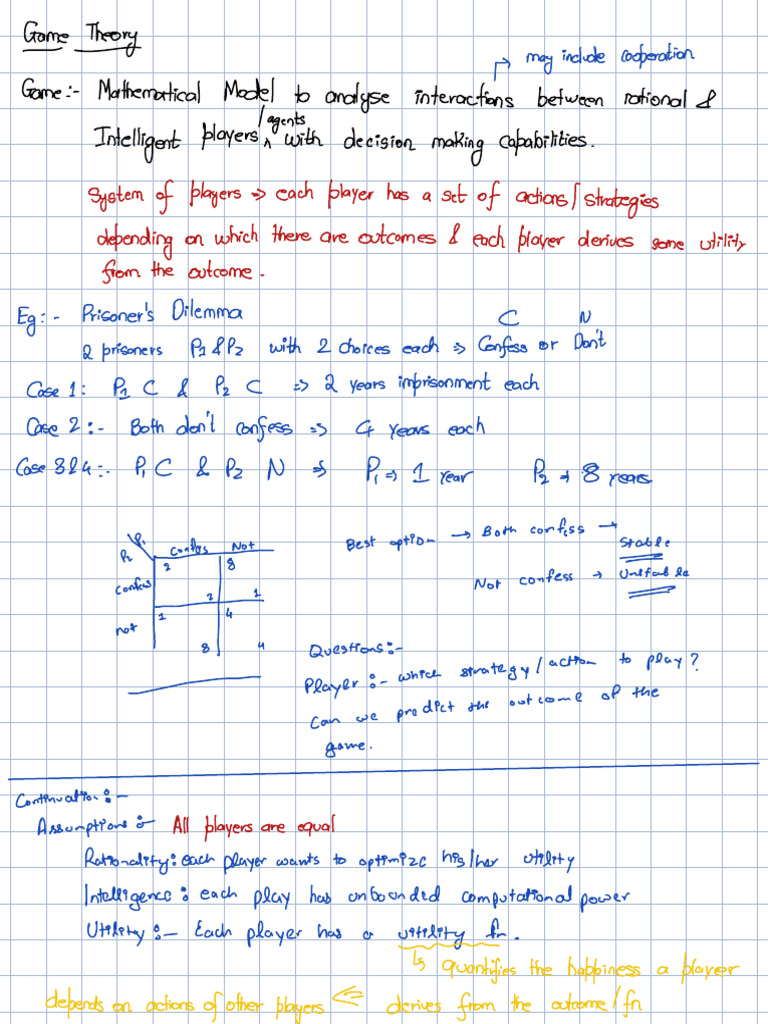 Game Theory
↱ may include cooperation
Game:- Mathematical Model to analyse interactions between rational &
Intelligent players/agents with decision making capabilities.
System of players => each player has a set of actions/strategies
depending on which there are outcomes & each player derives some utility
from the outcome.
Eg:- Prisoner's Dilemma C N
2 prisoners P1 & P2 with 2 choices each => Confess or Don't
Case 1: P1 C & P2 C => 2 years imprisonment each
Case 2:- Both don't confess => 4 years each
Case 3&4:- P1 C & P2 N => P1 => 1 year P2 => 8 years
P2 \ P1 Confess Not
confess 2 8
2 1
not 1 4
8 4
Best option → Both confess → Stable
Not confess → Unstable
Questions:-
Player:- which strategy/action to play?
Can we predict the outcome of the
game.
Continuation:-
Assumptions:- All players are equal
Rationality: each player wants to optimize his/her utility
Intelligence: each play has unbounded computational power
Utility:- Each player has a utility fn.
↳ quantifies the happiness a player
depends on actions of other players <= derives from the outcome/fn